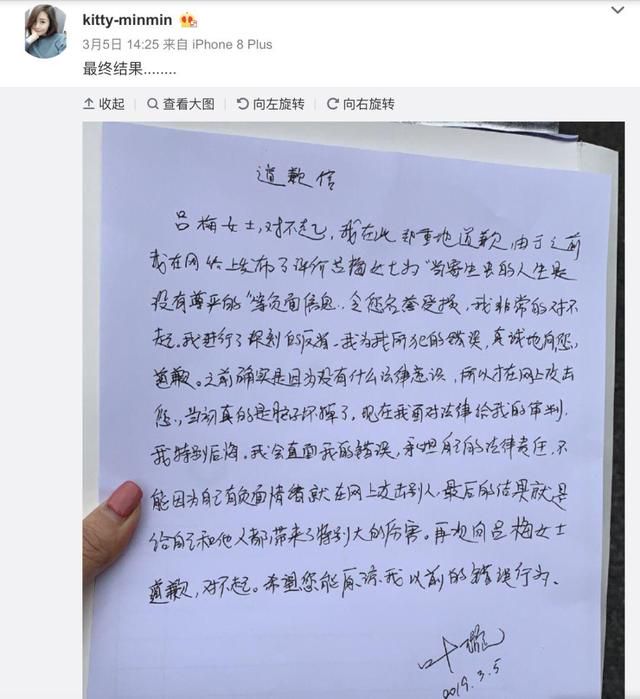 kitty-minmin
3月5日 14:25 来自 iPhone 8 Plus
最终结果........
收起 查看大图 向左旋转 向右旋转
道歉信
吕梅女士，对不起，我在此郑重地道歉，由于之前
我在网络上发布了评价吕梅女士为“当寄生虫的人生是
没有尊严的”等负面信息，令您名誉受损，我非常的对不
起。我进行了深刻的反省，我为我所犯的错误，真诚地向您
道歉。之前确实是因为没有什么法律意识，所以才在网上攻击
您，当初真的是脑子坏掉了，现在我面对法律给我的审判，
我特别后悔。我会直面我的错误，承担自己的法律责任，不
能因为自己有负面情绪就在网上攻击别人，最后的结果就是
给自己和他人都带来了特别大的伤害。再次向吕梅女士
道歉，对不起。希望您能原谅我以前的错误行为。
叶璇
2019.3.5